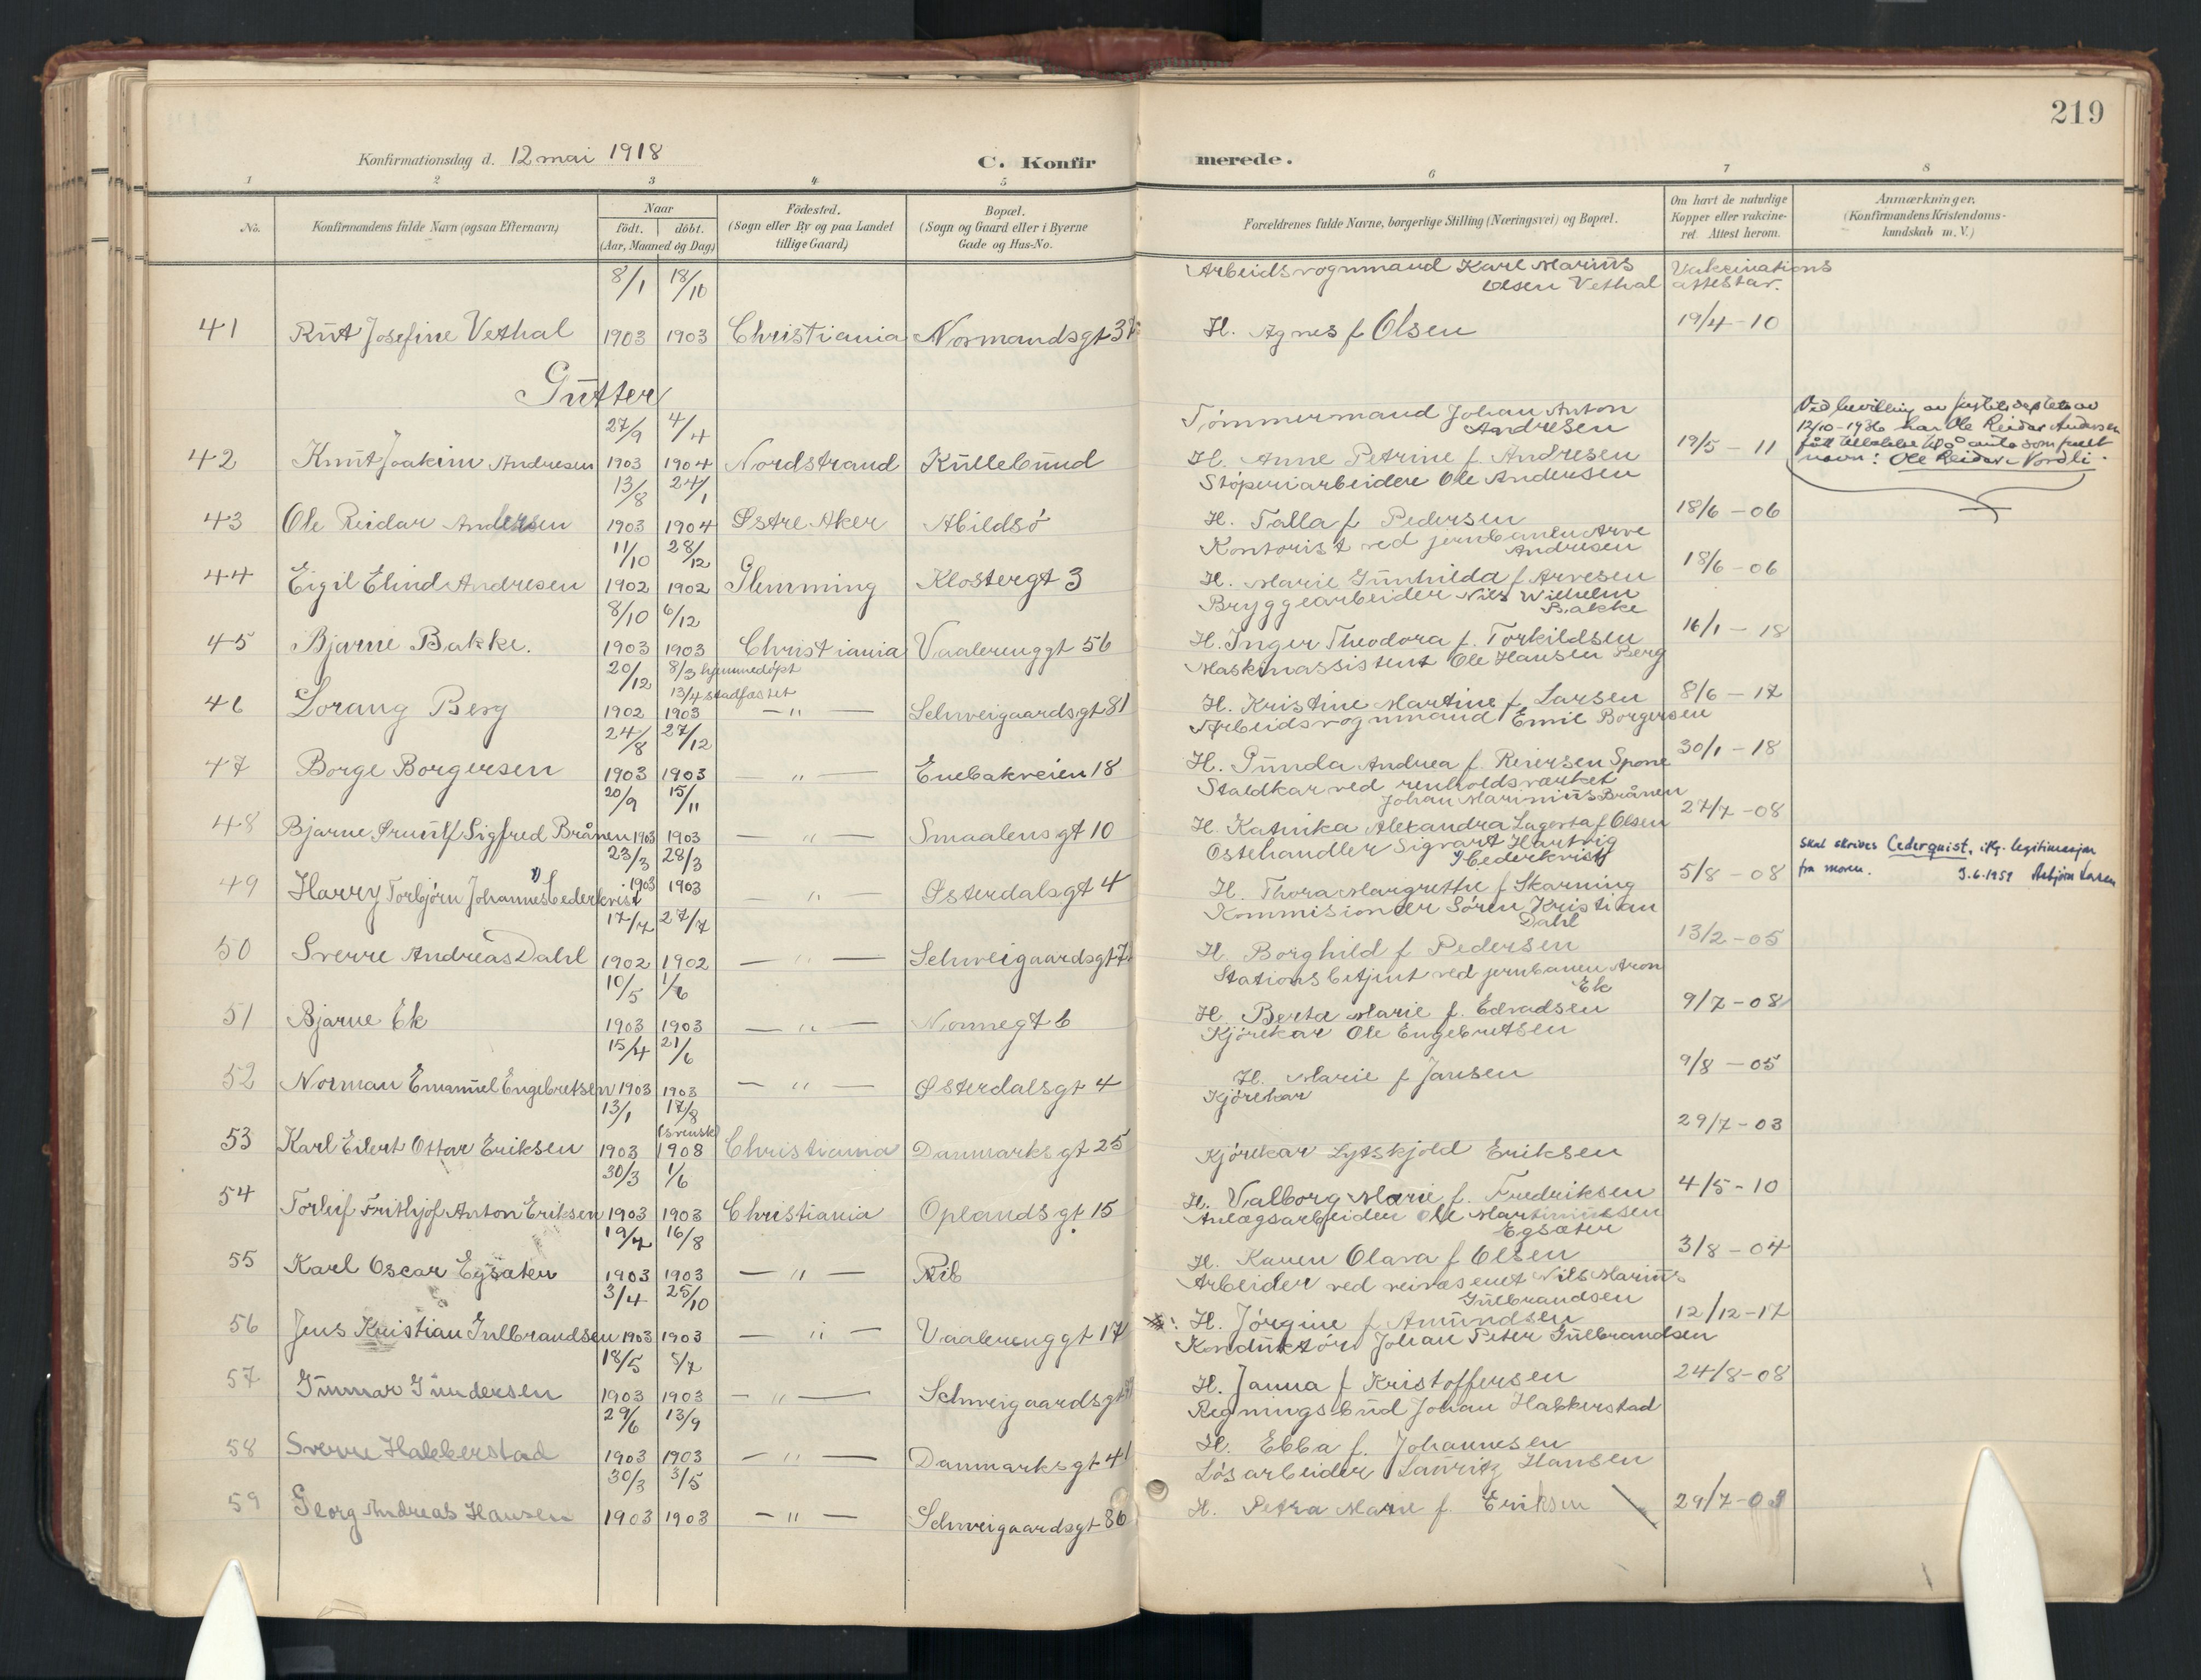 219
Konfirmationsdag d. 12 mai 1918
C. Konfirmerede.
1 2 3 4 5 6 7 8
No.
Konfirmandens fulde Navn (ogsaa Efternavn)
Naar
födt. döbt.
(Aar, Maaned og Dag)
Födested.
(Sogn eller By og paa Landet
tillige Gaard)
Bopæl.
(Sogn og Gaard eller i Byerne
Gade og Hus-No.
Forældrenes fulde Navne, borgerlige Stilling (Næringsvei) og Bopæl.
Om havt de naturlige
Kopper eller vakcine-
ret. Attest herom.
Anmærkninger.
(Konfirmandens Kristendoms-
kundskab m. V.)
8/1 18/10 Arbeidsvognmand Karl Marius Vakcinations
Olsen Vethal attestar.
41 Rut Josefine Vethal 1903 1903 Christiania Normandsgt H. Agnes f Olsen 19/4-10
Gutter
27/9 4/4 Tømmermand Johan Anton
Andresen
42 Knut Joakim Andresen 1903 1904 Nordstrand Kullebund H. Anne Petrine f. Andresen 19/5-11
Ved bevilling av justitsdeptets av
12/10-1936 har Ole Reidar Andersen
fått tillatelse til å anta som
navn: Ole Reidar Nordli.
13/8 24/1 Støperiarbeidere Ole Andersen
43 Ole Reidar Andersen 1903 1904 Østre Aker Abildsö H. Talla f. Pedersen 18/6-06
11/10 28/12 Kontorist ved jernbanen Arve
Andresen
44 Eigil Elind Andresen 1902 1902 Glemming Klostergt 3 H. Marie Gunhilda f Arvesen 18/6-06
8/10 6/12 Bryggearbeider Nils Wilhelm
Bakke
45 Bjarne Bakke. 1903 1903 Christiania Vaalerenggt 56 H. Inger Theodora f. Torkildsen 16/1-18
20/12 8/3 hjemmedöpt Maskinassistent Ole Hansen Berg
13/4 stadfæstet
46 Lorang Berg 1902 1903 — " — Schweigaardsgt 81 H. Kristine Martine f. Larsen 8/6-17
24/8 27/12 Arbeidsvognmand Emil Borgersen
47 Borge Borgersen 1903 1903 — " — Enebakveien 18 H. Gunda Andrea f. Reiersen Spone 30/1-18
20/9 15/11 Staldkar ved renholdsværket
Johan Marinius Brånen
48 Bjarne Sigfred Brånen 1903 1903 — " — Smaalensgt 10 H. Katinka Alexandra Lagerta f Olsen 27/7-08
23/3 28/3 Ostehandler Sigvart Hartvig
Cederkvist
49 Harry Torbjörn Johannes 1) Cederkvist 1903 1903 " Østerdalsgt 4 H. Thora Margrethe f Skarning 5/8-08
skal skrives Cederquist, ifg. legitimasjon
fra moren. 3.6.1959 Asbjørn Larsen
17/7 27/7 Kommisionær Sören Kristian
Dahl
50 Sverre Andreas Dahl 1902 1902 — " — Schweigaardsgt H Borghild f Pedersen 13/2-05
10/5 1/6 Stationsbetjent ved jernbanen Aron
Ek
51 Bjarne Ek 1903 1903 — " — Nonnegt 6 H. Berta Marie f. Edvadsen 9/7-08
15/4 21/6 Kjörekar Ole Engebretsen
52 Norman Emanuel Engebretsen 1903 1903 — " — Østerdalsgt 4 H. Marie f Jansen 9/8-05
13/1 17/8 Kjörekar
(svensk)
53 Karl Eilert Ottar Eriksen 1903 1908 Christiania Danmarksgt 25 Kjörekar Lytskjold Eriksen 29/7-03
30/3 1/6
54 Torleif Frithjof Anton Eriksen 1903 1903 Christiania Oplandsgt 15 H. Valborg Marie f. Fredriksen 4/5-10
19/4 16/8 Anlægsarbeider Ole Martiniussen
Egsæter
55 Karl Oscar Egsæter 1903 1903 — " — Rib H. Karen Olava f Olsen 3/8-04
3/4 25/10 Arbeider ved veivæsenet Nils Marius
Gulbrandsen
56 Jens Kristian Gulbrandsen 1903 1903 — " — Vaalerenggt 17 H. Jörgine f Amundsen 12/12-17
18/5 5/7 Konduktör Johan Peter Gulbrandsen
57 Gunnar Gundersen 1903 1903 — " — Schweigaardsgt H. Janna f Kristoffersen 24/8-08
29/6 13/9 Regningsbud Johan Habberstad
58 Sverre Habberstad 1903 1903 — " — Danmarksgt 41 H. Ebba f. Johannesen
30/3 3/5 Lösarbeider Lauritz Hansen
59 Georg Andreas Hansen 1903 1903 — " — Schweigaardsgt 86 H. Petra Marie f Eriksen 29/7-03